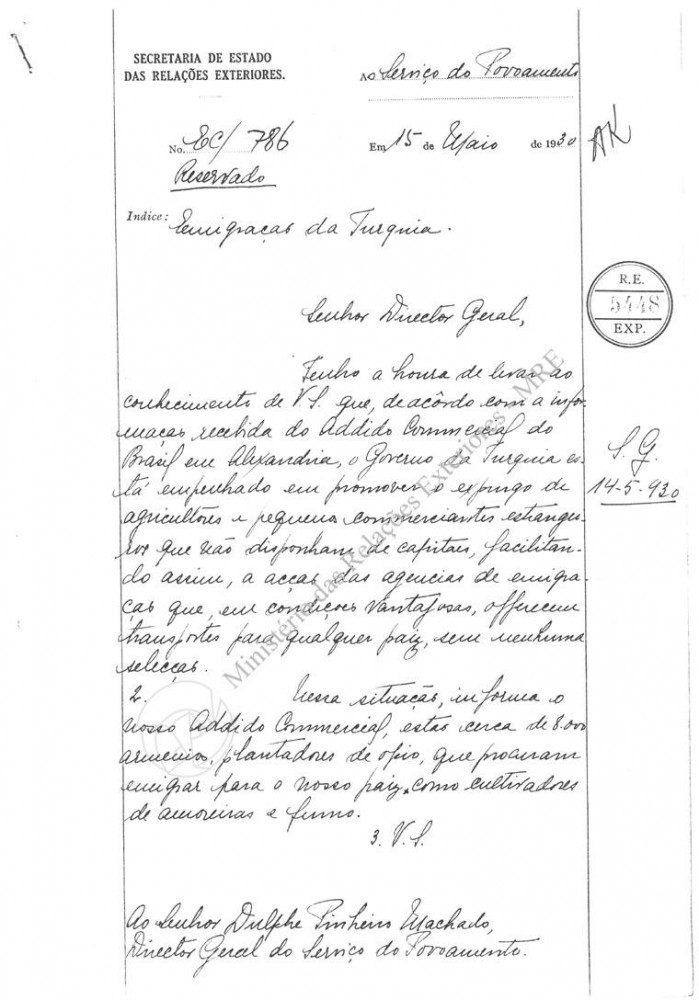 SECRETARIA DE ESTADO
DAS RELAÇÕES EXTERIORES.
Ao Serviço do Povoamento
No. EC/ 786
Em 15 de Maio de 1930
AK
Reservado
Indice: Emigraçaõ da Turquia.
R.E.
5448
EXP.
Senhor Director Geral,
Tenho a honra de levar ao
conhecimento de V.S. que, de acôrdo com a infor-
maçaõ recebida do Addido Commercial do
Brasil em Alexandria, o Governo da Turquia es-
tá empenhado em promover o expurgo de
agricultores e pequenos commerciantes estrangei-
ros que não disponham de capitaes, facilitan-
do assim, a acçaõ das agencias de emigra-
çaõ que, em condições vantajosas, offerecem
transportes para qualquer paiz, sem nenhuma
selecçaõ.
S. G.
14-5-930
2. Nessa situaçaõ, informa o
nosso Addido Commercial, estaõ cerca de 8.000
armenios, plantadores de opio, que procuram
emigrar para o nosso paiz, como cultivadores
de amoreiras e fumo.
3. V.S.
Ao Senhor Dulphe Pinheiro Machado,
Director Geral do Serviço do Povoamento.
Ministério das Relações Exteriores - MRE